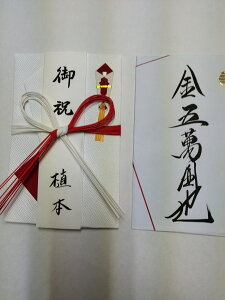 御祝
植本
金五萬圓也